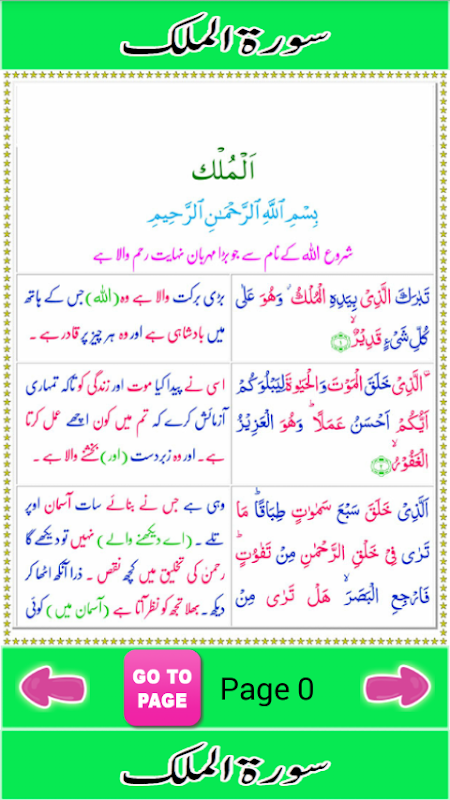 سورة الملک
اَلْمُلْك
بِسْمِ اللّٰهِ الرَّحْمٰنِ الرَّحِيْمِ
شروع اللہ کے نام سے جو بڑا مہربان نہایت رحم والا ہے
تَبٰرَكَ الَّذِىْ بِيَدِهِ الْمُلْكُ وَهُوَ عَلٰى
كُلِّ شَىْءٍ قَدِيْرُ ۙ‏﴿۱﴾
بڑی برکت والا ہے وہ (اللہ) جس کے ہاتھ
میں بادشاہی ہے اور وہ ہر چیز پر قادر ہے ۔
ۨالَّذِىْ خَلَقَ الْمَوْتَ وَالْحَيٰوةَ لِيَبْلُوَكُمْ
اَيُّكُمْ اَحْسَنُ عَمَلًا ؕ وَهُوَ الْعَزِيْزُ
الْغَفُوْرُ ۙ‏﴿۲﴾
اسی نے پیدا کیا موت اور زندگی کو تاکہ تمہاری
آزمائش کرے کہ تم میں کون اچھے عمل کرتا
ہے ۔ اور وہ زبردست (اور) بخشنے والا ہے ۔
الَّذِىْ خَلَقَ سَبْعَ سَمٰوٰتٍ طِبَاقًا ؕ مَا
تَرٰى فِىْ خَلْقِ الرَّحْمٰنِ مِنْ تَفٰوُتٍ ؕ
فَارْجِعِ الْبَصَرَ ۙ هَلْ تَرٰى مِنْ
وہی ہے جس نے بنائے سات آسمان اوپر
تلے ۔ (اے دیکھنے والے) نہیں تو دیکھے گا
رحمن کی تخلیق میں کچھ نقص ۔ ذرا آنکھ اٹھا کر
دیکھ ۔ بھلا تجھ کو نظر آتا ہے (آسمان میں) کوئی
GO TO
PAGE
Page 0
سورة الملک